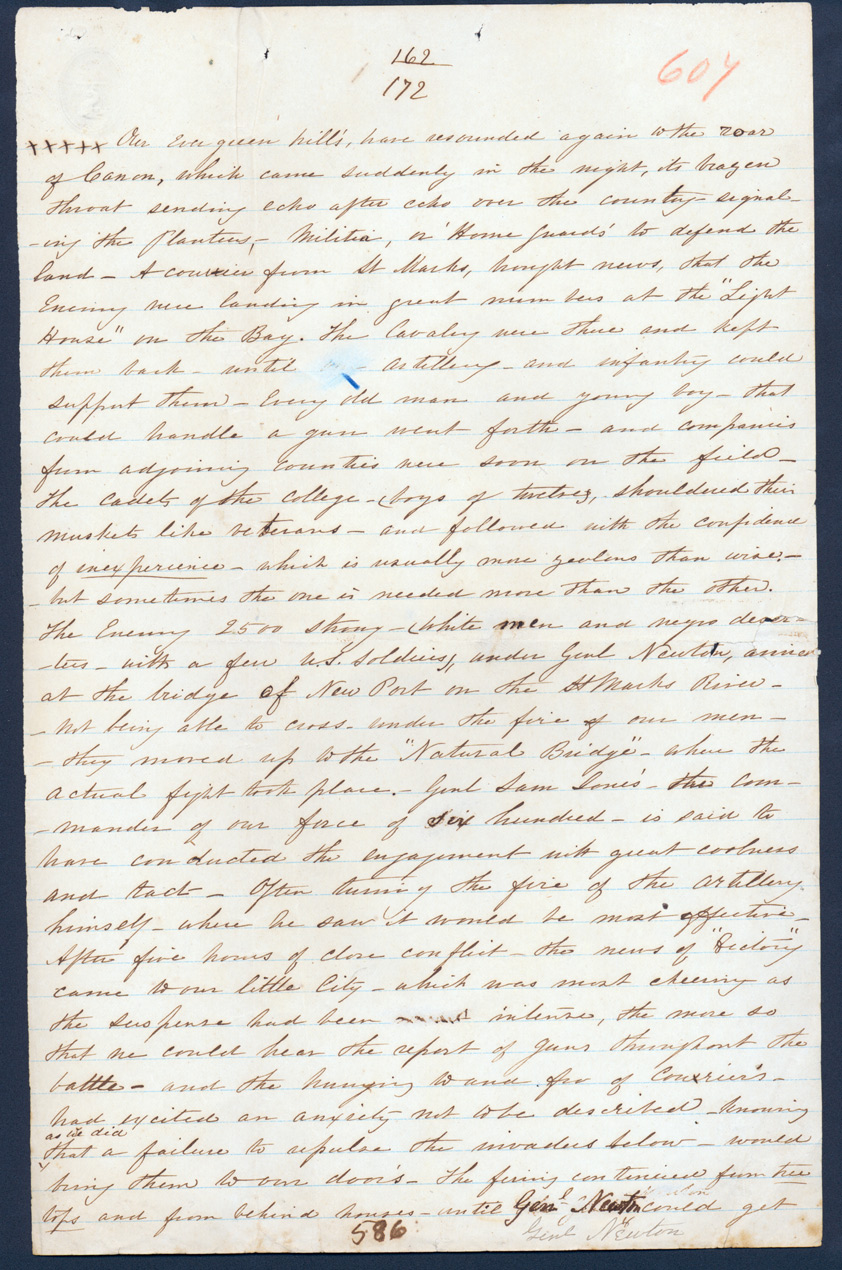 162
172
607
+++++ Our Ever green hill's, have resounded again to the roar
of Canon, which came suddenly in the night, its brazen
throat sending echo after echo over the country signal-
-ing the Planters,- Militia, or 'Home Guards' to defend the
land - A courier from St Marks, brought news, that the
Enemy were landing in great numbers at the "Light
House" on the Bay. The Cavalry were there and kept
them back - until - artillery - and infantry could
support them - Every old man and young boy - that
could handle a gun went forth - and companies
from adjoining counties were soon on the field -
The cadets of the College - (boys of twelve), shouldered their
muskets like veterans - and followed with the confidence
of inexperience - which is usually more zealous than wise. -
- but sometimes the one is needed more than the other.
The Enemy 2500 strong - (White men and negro deser-
-ters - with a few U.S. Soldiers), under Genl Newton, arrive
at the bridge of New Port on the St Marks River -
- not being able to cross - under the fire of our men -
- they moved up to the "Natural Bridge" - where the
actual fight took place. - Genl Sam Jone's - the com-
-mander of our force of six hundred - is said to
have conducted the engagement with great coolness
and tact - Often turning the fire of the artillery
himself - where he saw it would be most effective -
After five hours of close conflict - the news of "Victory"
came to our little City - which was most cheering as
the suspense had been intense, the more so
that we could hear the report of guns throughout the
battle - and the hurrying to and fro of Courier's -
had excited an anxiety not to be described - knowing
as we did
that a failure to repulse the invaders below - would
bring them to our door's - The firing continued from tree
tops and from behind houses - until Genl Newton could get
586
Genl Newton